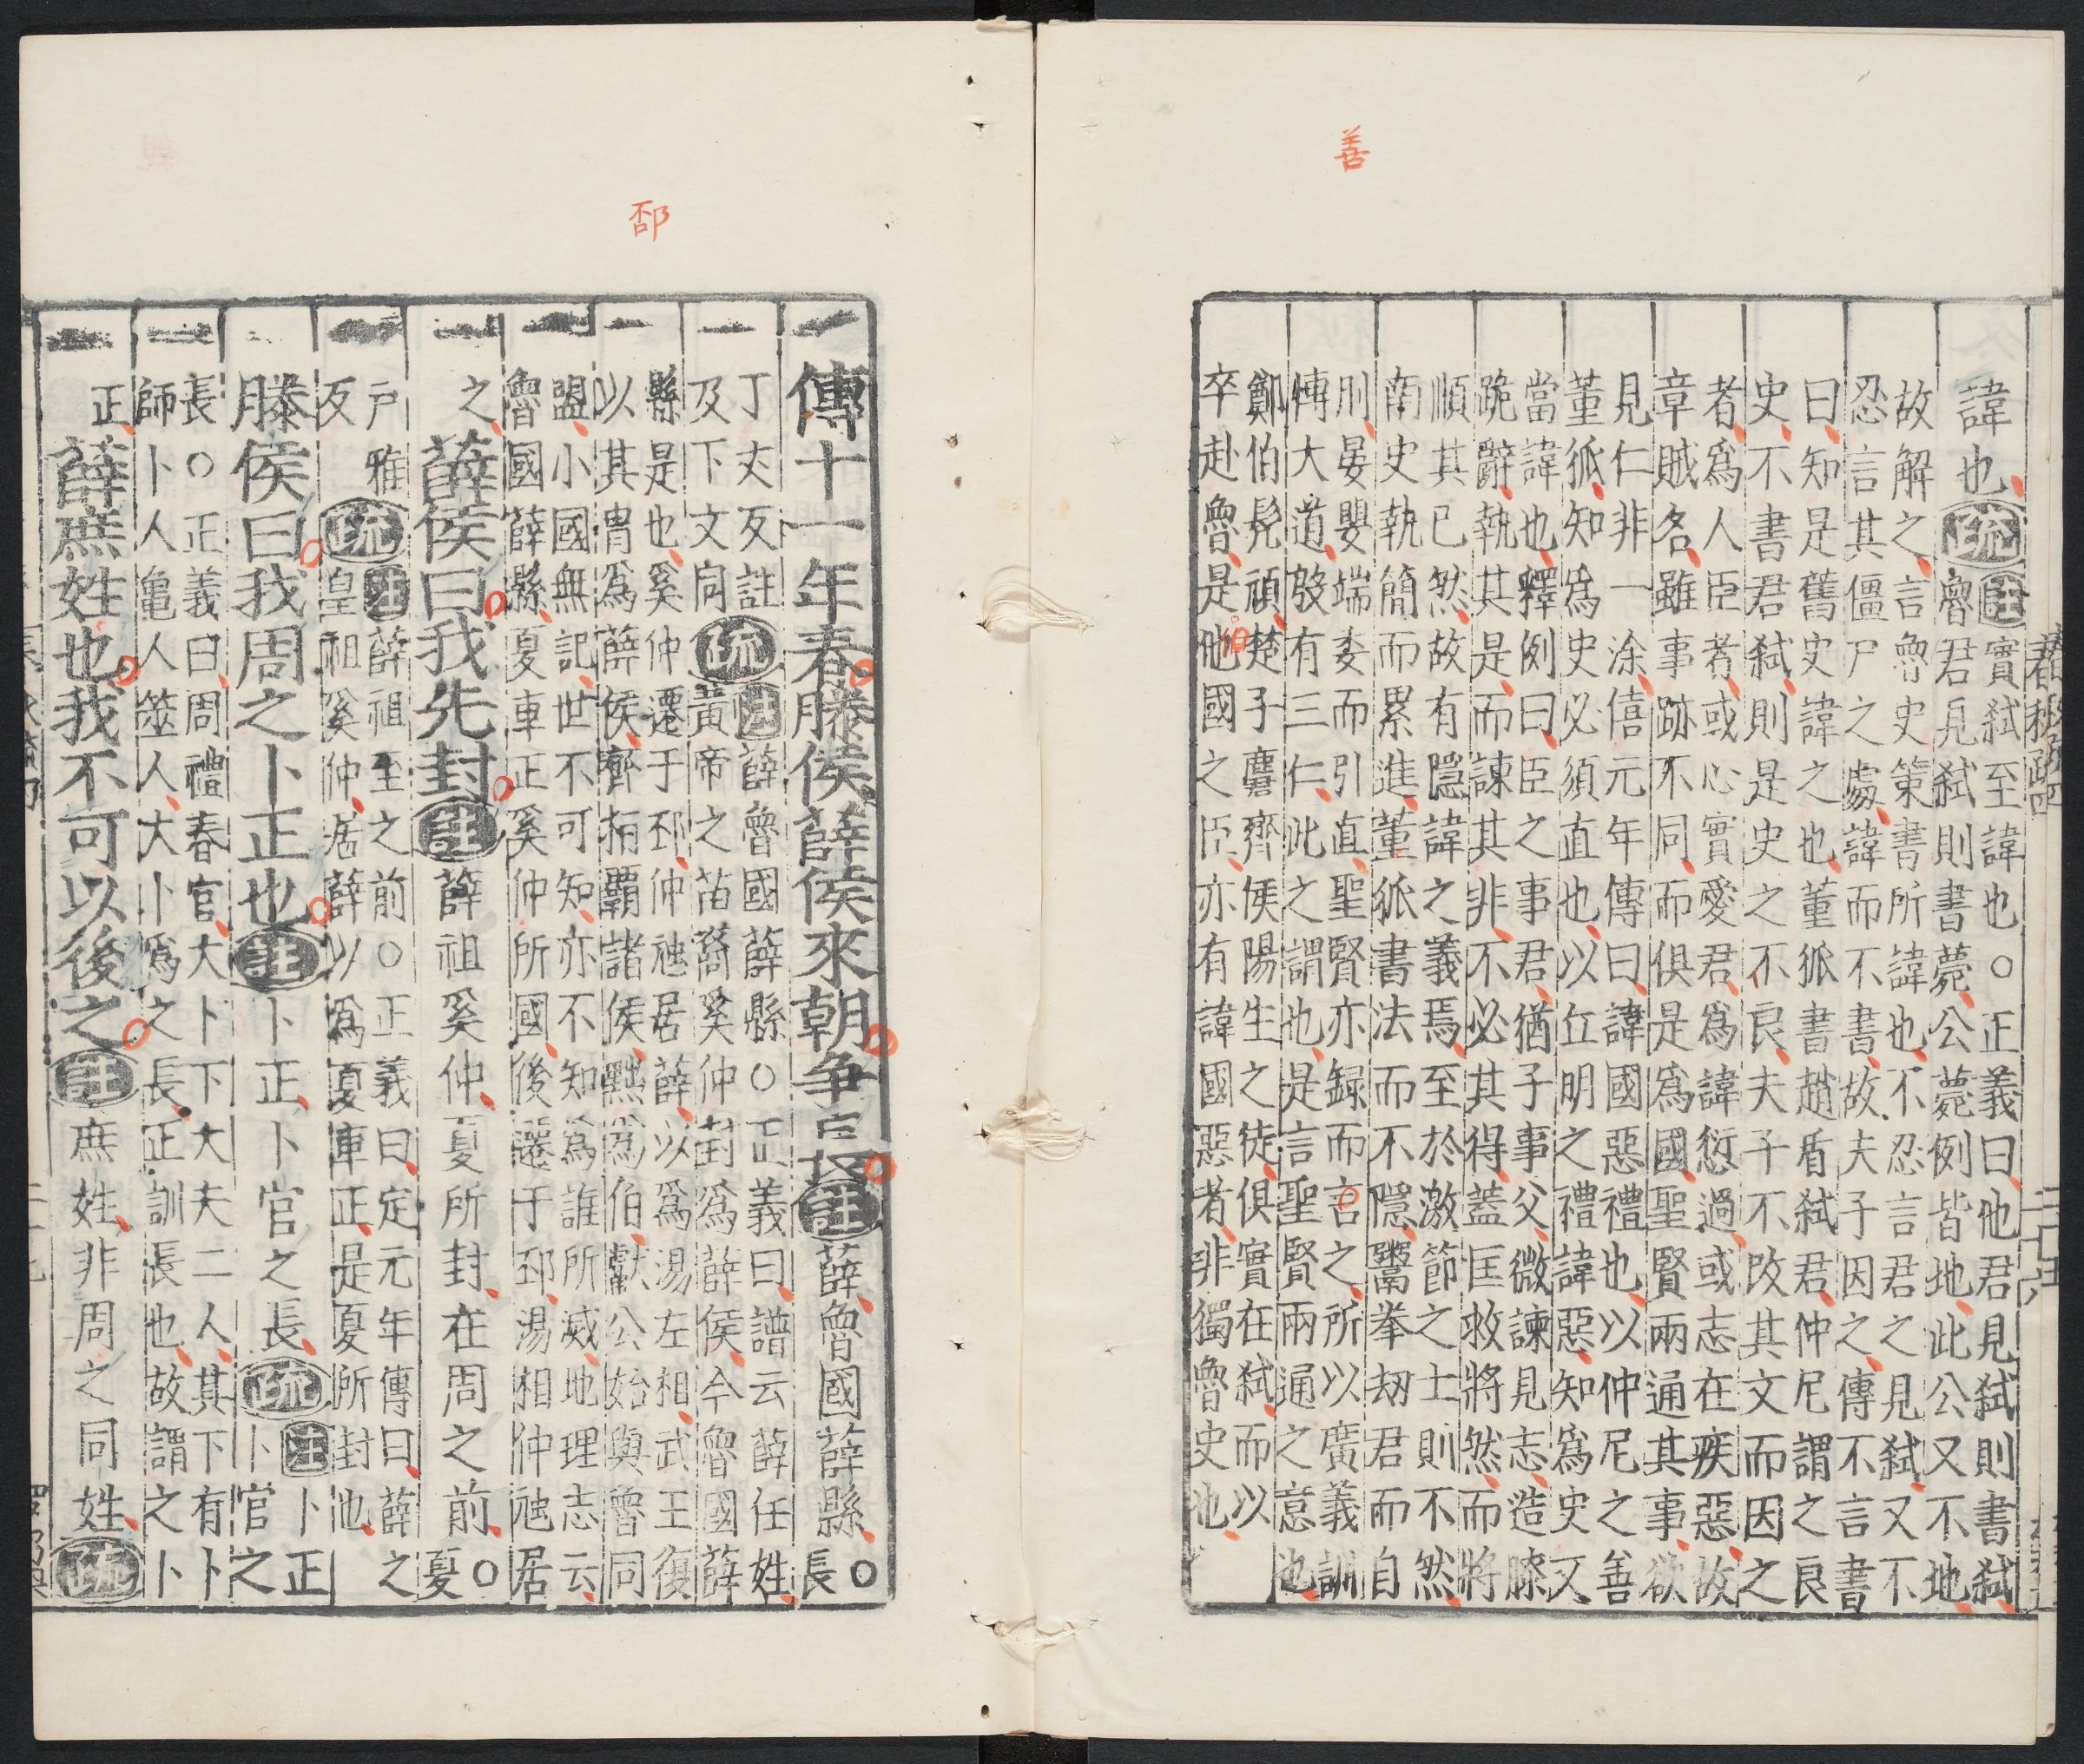 善
諱也
疏
注
實弑至諱也○正義曰他君見弑則書弑
魯君見弑則書薨公薨例皆地此公又不地
故解之言魯史策書所諱也不忍言君之見弑又不
忍言其僵尸之處諱而不書故夫子因之傳不言書
曰知是舊史諱之也董狐書趙盾弑君仲尼謂之良
史不書君弑則是史之不良夫子不改其文而因之
者為人臣者或心實愛君為諱愆過或志在疾惡故
章賊名雖事跡不同而俱是為國聖賢兩通其事欲
見仁非一涂僖元年傳曰諱國惡禮也以仲尼之善
董狐知為史必須直也以丘明之禮諱惡知為史又
當諱也釋例曰臣之事君猶子事父微諫見志造膝
跪辭執其是而諫其非不必其得蓋匡救將然而將
順其已然故有隱諱之義焉至於激節之士則不然
南史執簡而累進董狐書法而不隱鬻拳劫君而自
刖晏嬰端委而引直聖賢亦録而言之所以廣義訓
慱大道殷有三仁此之謂也是言聖賢兩通之意也
鄭伯髠頑楚子麇齊侯陽生之徒俱實在弑而以
卒赴魯是他國之臣亦有諱國惡者非獨魯史也
郘
傳十一年春滕侯薛侯來朝争長
註
薛魯國薛縣○長
丁丈反註
及下文同
疏
注
薛魯國薛縣○正義曰譜云薛任姓
黃帝之苗裔奚仲封為薛侯今魯國薛
縣是也奚仲遷于邳仲虺居薛以為湯左相武王復
以其冑為薛侯齊桓霸諸侯黜為伯獻公始與魯同
盟小國無記世不可知亦不知為誰所滅地理志云
魯國薛縣夏車正奚仲所國後遷于邳湯相仲虺居
之
薛侯曰我先封
註
薛祖奚仲夏所封在周之前○夏
戶雅
反
疏
注
薛祖至之前○正義曰定元年傳曰薛之
皇祖奚仲居薛以為夏車正是夏所封也
滕侯曰我周之卜正也
註
卜正卜官之長
疏
注
卜正
卜官之
長○正義曰周禮春官大卜下大夫二人其下有卜
師卜人龜人筮人大卜為之長正訓長也故謂之卜
正
薛庶姓也我不可以後之
註
庶姓非周之同姓
疏